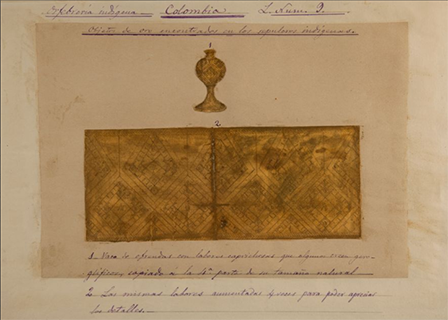 Orfebrería indígena Colombia L. Num. 9.
Objetos de oro encontrados en los sepulcros indígenas.
1
2
1. Vaso de ofrendas con labores caprichosas que algunos creen gero-
glíficos, copiado á la 4ª parte de su tamaño natural
2. Las mismas labores aumentadas 4 veces para poder apreciar
los detalles.